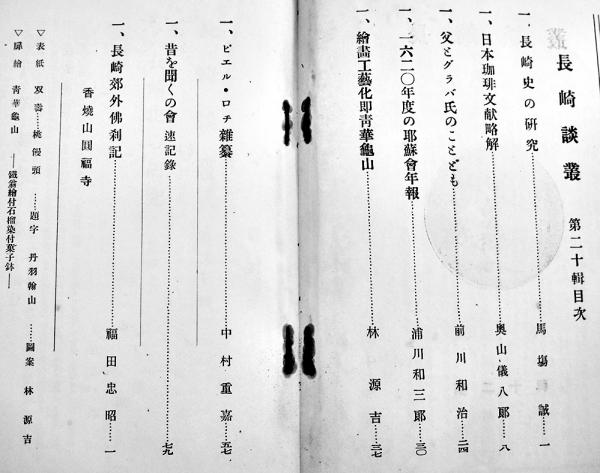 長崎談叢 第二十輯目次
一、長崎史の研究……馬場 誠……一
一、日本珈琲文献略解……奥山儀八郎……八
一、父とグラバ氏のことども……前川和治……二四
一、一六二〇年度の耶蘇會年報……浦川和三郎……三〇
一、繪畫工藝化即靑華龜山……林 源吉……三七
一、ピエル・ロチ雜纂……中村重嘉……五七
一、昔を聞くの會 速記錄……七九
一、長崎郊外佛刹記……福田忠昭……一
香燒山圓福寺
▽表紙 双壽……桃饅頭……題字 丹羽翰山……圖案 林 源吉
▽扉繪 靑華龜山
——鐵翁繪付石榴染付菓子鉢——